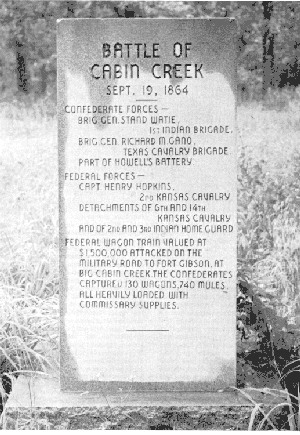 BATTLE OF
CABIN CREEK
SEPT. 19, 1864
CONFEDERATE FORCES —
BRIG. GEN. STAND WATIE,
1ST INDIAN BRIGADE.
BRIG. GEN. RICHARD M. GANO,
TEXAS CAVALRY BRIGADE
PART OF HOWELL'S BATTERY
FEDERAL FORCES —
CAPT. HENRY HOPKINS,
2ND KANSAS CAVALRY
DETACHMENTS OF 6TH AND 14TH
KANSAS CAVALRY
AND OF 2ND AND 3RD INDIAN HOME GUARD
FEDERAL WAGON TRAIN VALUED AT
$1,500,000 ATTACKED ON THE
MILITARY ROAD TO FORT GIBSON, AT
BIG CABIN CREEK. THE CONFEDERATES
CAPTURED 130 WAGONS, 740 MULES,
ALL HEAVILY LOADED WITH
COMMISSARY SUPPLIES.